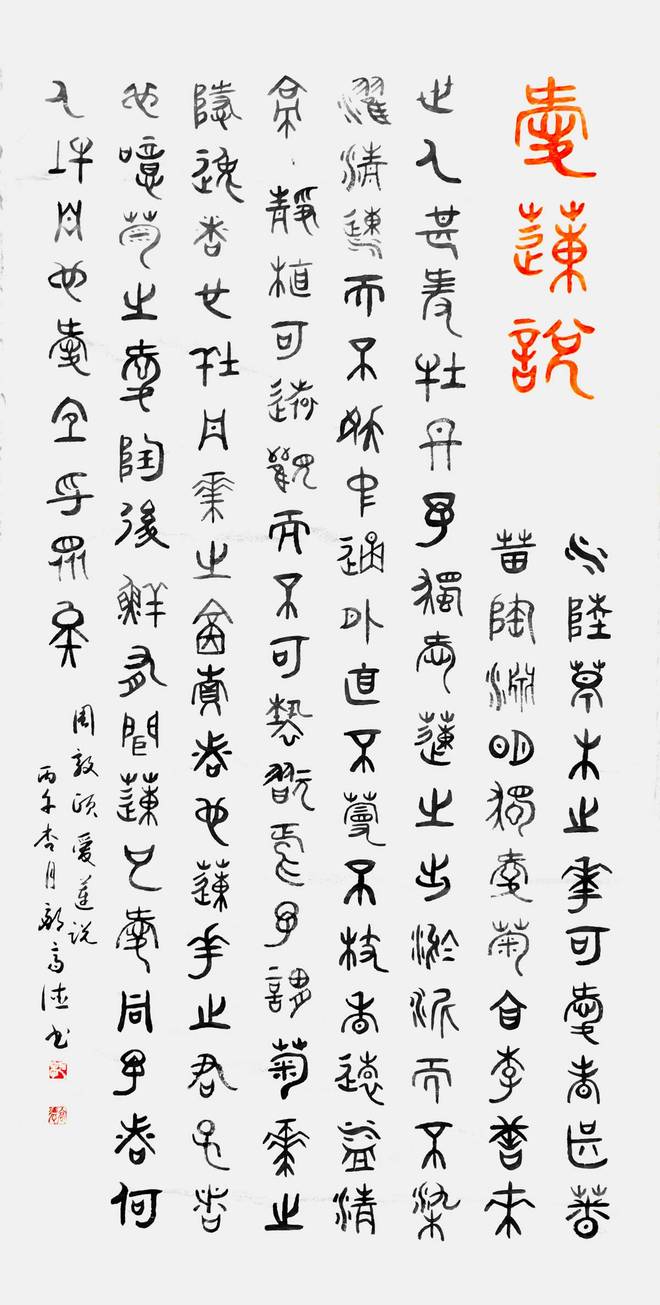 愛蓮說
水陸草木之華可愛者甚蕃
晉陶淵明獨愛菊自李唐來
世人甚愛牡丹予獨愛蓮之出淤泥而不染
濯清漣而不妖中通外直不蔓不枝香遠益清
亭、靜植可遠觀而不可褻翫焉予謂菊華之
隱逸者也牡丹華之富貴者也蓮華之君子者
也噫菊之愛陶後鮮有聞蓮之愛同予者何
人牡丹之愛宜乎眾矣
周敦頤愛蓮説
丙午杏月 高书